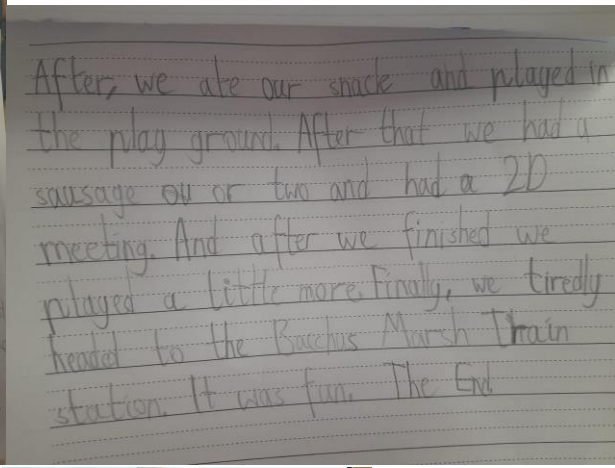 After, we ate our snack and played in
the play ground. After that we had a
sausage or two and had a 2D
meeting. And after we finished we
played a little more. Finally, we tiredly
headed to the Bacchus Marsh Train
station. It was fun. The End